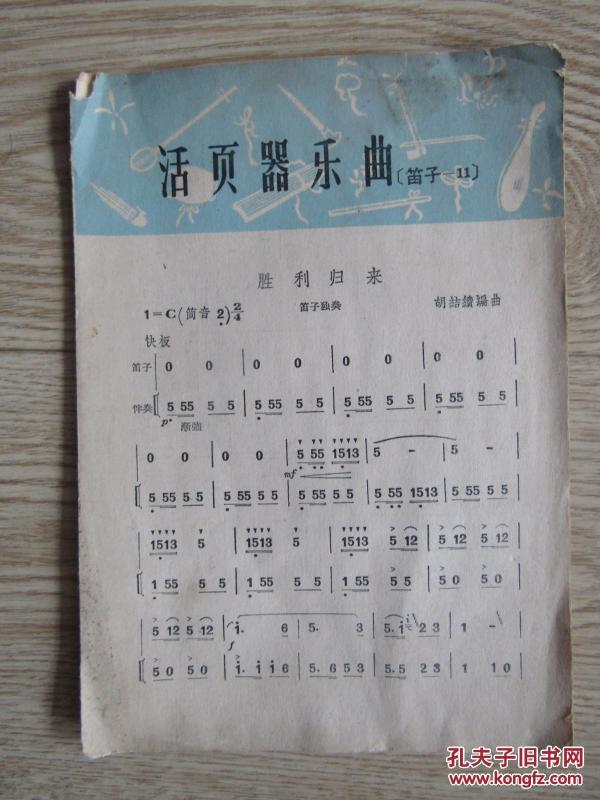 活页器乐曲〔笛子—11〕
胜利归来
1=C(筒音2)2/4 笛子独奏 胡結續編曲
快板
笛子 0 0 | 0 0 | 0 0 | 0 0 |
伴奏 5 55 5 5 | 5 55 5 5 | 5 55 5 5 | 5 55 5 5 |
p 渐强
0 0 | 0 0 | 5 55 1513 | 5 - | 5 -
mf
5 55 5 5 | 5 55 5 5 | 5 55 5 5 | 5 55 1513 | 5 5 5 5
1513 5 | 1513 5 | 1513 5 12 | 5 12 5 12
1 55 5 5 | 1 55 5 5 | 1 55 5 5 | 5 0 5 0
5 12 5 12 | 1. 6 | 5. 3 | 5. 1 2 3 | 1 -
f
5 0 5 0 | 1. 1 1 6 | 5. 6 5 3 | 5. 5 2 3 | 1 1 0
孔夫子旧书网
www.kongfz.com